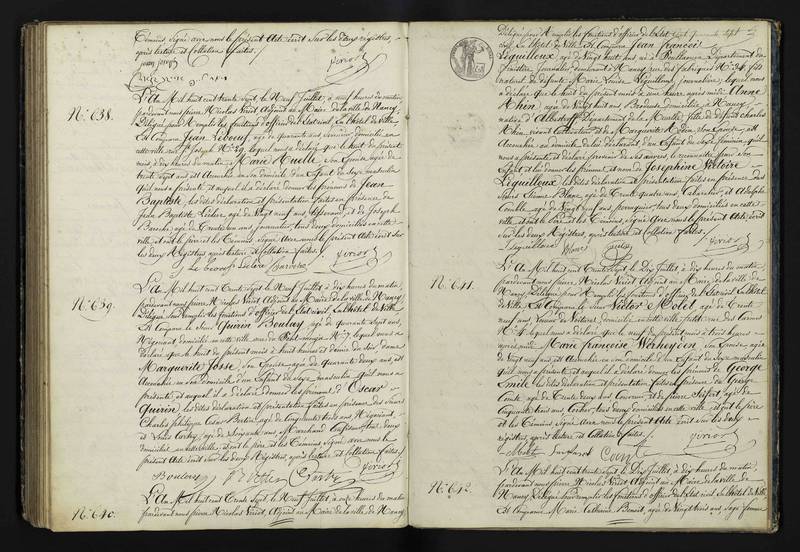 témoins signé avec nous le présent Acte écrit sur les deux registres,
après lecture et Collation faites.
N.° 638.
L'An Mil huit cent trente sept, le Neuf Juillet, à neuf heures du matin,
pardevant nous pierre Nicolas Noisot Adjoint au Maire de la ville de Nancy,
Délégué pour Remplir les fonctions d'officier de l'Etat civil, En l'hôtel de Ville
Est Comparu Jean Leboeuf, agé de quarante ans, domicilié en
cette ville rue S.t Joseph N.° 29, lequel nous a déclaré que le huit du présent
mois, à dix heures du matin, Marie Ruelle, son Epouse, agée de
trente ans est Accouchée en son domicile d'un Enfant du sexe masculin
qu'il nous présente et auquel il a déclaré donner les prénoms de Jean
Baptiste, les dites déclaration et présentation faites en présence de
Jean Baptiste Leclère agé de Vingt neuf ans, et de Joseph
agé de Trente un ans, Journalier, tous deux domiciliés en cette
ville, et ont le père et les témoins, signé Avec nous le présent Acte écrit sur
les deux Registres après lecture et Collation faites.
Le boeuf Leclère Baroche
N.° 639.
L'An Mil huit cent trente sept le Dix Juillet, à dix heures du matin,
pardevant nous pierre Nicolas Noisot Adjoint au Maire de la ville de Nancy
Délégué pour Remplir les fonctions d'officier de l'Etat civil, En l'hôtel de Ville
Est Comparu le Sieur Quirin Boulay, agé de quarante sept ans,
Négociant domicilié en cette ville, rue lequel nous a
déclaré que le huit du présent mois à huit heures du soir dame
Marguerite Josse, son Epouse agée de quarante deux ans, est
Accouchée en son domicile d'un Enfant du Sexe masculin qu'il nous a
présenté, et auquel il a déclaré donner les prénoms d'Oscar
Quirin, les dites déclaration et présentation faites en présence des Sieurs
Charles philippe César Bertier, agé de cinquante trois ans Négociant,
et Louis agé de Soixante ans, Marchand tous deux
domiciliés en cette ville, et ont le père et les témoins signé avec nous le
présent Acte écrit sur les deux Registres, après lecture et Collation faites.
Boulay
N.° 640.
L'An Mil huit cent Trente Sept le Neuf Juillet, à onze heures du matin
pardevant nous pierre Nicolas Noisot, Adjoint au Maire de la ville de Nancy,
Délégué pour Remplir les fonctions d'officier de l'Etat
civil, En l'hôtel de Ville, Est Comparu Jean françois
Lequilloux, agé de Vingt huit ans né à Département du
finistère, Journalier, domicilié à Nancy, rue des fabriques N.° 34, fils
naturel de défunte Marie Louise Lequilloux, Journalière, lequel nous
a déclaré que le huit du présent mois à une heure après midi Anne
Rhin, agée de Vingt huit ans Brodeuse domiciliée à Nancy,
native d'Albestroff Département de la Meurthe, fille de défunt Charles
Rhin, vivant Cultivateur et de Marguerite son Epouse, est
Accouchée au domicile de lui déclarant d'un Enfant du Sexe féminin, qu'il
nous a présenté et déclaré provenir de ses œuvres, le reconnaître pour son
Enfant et lui donner les prénoms et nom de Joséphine Victoire
Lequilloux, les dites déclaration et présentation faites en présence des
Sieurs Etienne agé de Trente quatre ans, Cabaretier, et Adolphe
agé de Vingt sept ans, perruquier, tous deux domiciliés en cette
ville, et ont le père et les témoins, signé Avec nous le présent Acte écrit
sur les deux Registres, après lecture et Collation faites.
Lequilloux
N.° 641.
L'An Mil huit cent Trente Sept le Dix Juillet, à dix heures du matin,
pardevant nous pierre Nicolas Noisot Adjoint au Maire de la ville de
Nancy, Délégué pour Remplir les fonctions d'officier de l'Etat civil En l'hôtel
de Ville Est Comparu le Sieur Victor agé de Trente
neuf ans, domicilié en cette ville, rue des Carmes
N.° 4 lequel nous a déclaré que le neuf du présent mois à trois heures
après midi Marie françoise Werheyden, son Epouse, agée
de Vingt neuf ans, est Accouchée en son domicile d'un Enfant du Sexe masculin
qu'il nous a présenté et auquel il a déclaré donner les prénoms de George
Emile, les dites déclaration et présentation faites en présence de George
agé de Trente deux ans et de pierre agé de
Cinquante trois ans Cocher, tous deux domiciliés en cette ville, et ont le père
et les témoins, signé Avec nous le présent Acte écrit sur les deux
registres, après lecture et Collation faites.
N.° 642.
L'An Mil huit cent trente sept, le Dix Juillet, à dix heures du matin,
pardevant nous pierre Nicolas Noisot Adjoint au Maire de la ville de
Nancy Délégué pour remplir les fonctions d'officier de l'Etat civil, En l'hôtel de Ville
Est Comparue Marie Catherine Benoit, agée de Vingt trois ans, Sage femme